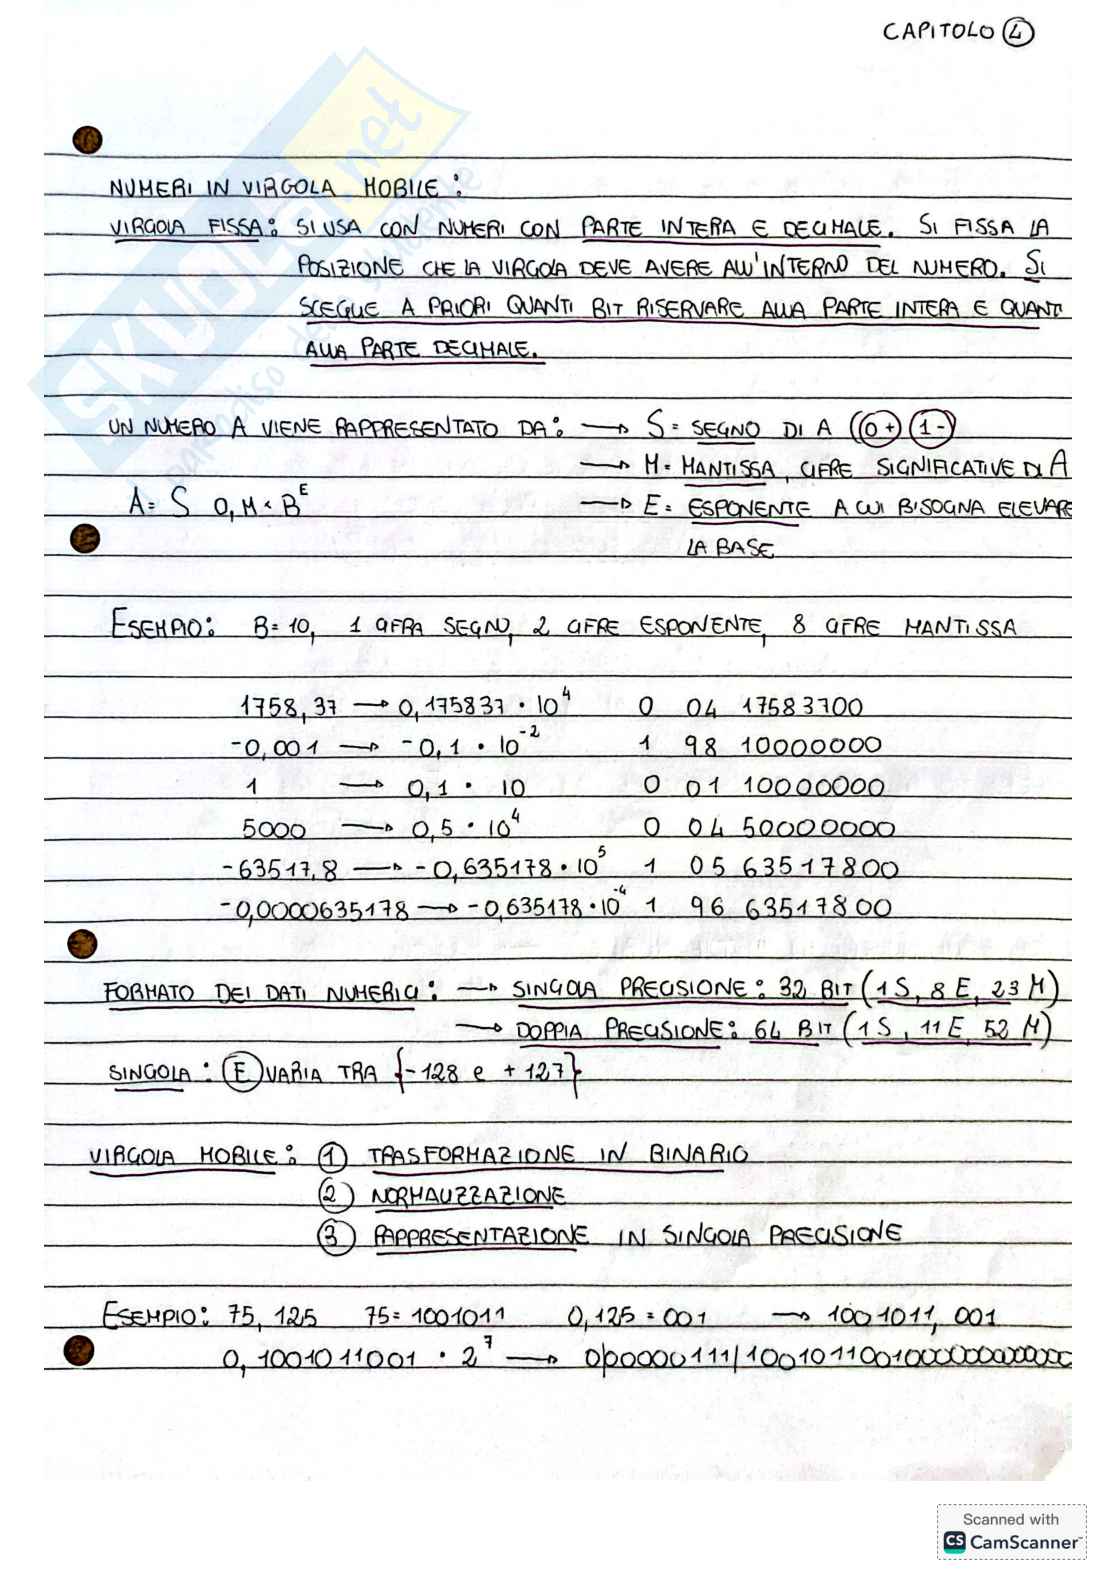 CAPITOLO 4
NUMERI IN VIRGOLA MOBILE :
VIRGOLA FISSA: SI USA CON NUMERI CON PARTE INTERA E DECIMALE. SI FISSA LA
POSIZIONE CHE LA VIRGOLA DEVE AVERE ALL'INTERNO DEL NUMERO. SI
SCEGLIE A PRIORI QUANTI BIT RISERVARE ALLA PARTE INTERA E QUANTI
ALLA PARTE DECIMALE.
UN NUMERO A VIENE RAPPRESENTATO DA: → S = SEGNO DI A (0+) (1-)
→ M = MANTISSA, CIFRE SIGNIFICATIVE DI A
A = S 0,M × B^E → E = ESPONENTE A CUI BISOGNA ELEVARE
LA BASE
ESEMPIO: B=10, 1 CIFRA SEGNO, 2 CIFRE ESPONENTE, 8 CIFRE MANTISSA
1758,37 → 0,175837 · 10^4 0 04 17583700
-0,001 → -0,1 · 10^-2 1 98 10000000
1 → 0,1 · 10 0 01 10000000
5000 → 0,5 · 10^4 0 04 50000000
-63517,8 → -0,635178 · 10^5 1 05 63517800
-0,0000635178 → -0,635178 · 10^-4 1 96 63517800
FORMATO DEI DATI NUMERICI: → SINGOLA PRECISIONE: 32 BIT (1 S, 8 E, 23 M)
→ DOPPIA PRECISIONE: 64 BIT (1 S, 11 E, 52 M)
SINGOLA : E VARIA TRA {-128 e +127}
VIRGOLA MOBILE: 1 TRASFORMAZIONE IN BINARIO
2 NORMALIZZAZIONE
3 RAPPRESENTAZIONE IN SINGOLA PRECISIONE
ESEMPIO: 75,125 75=1001011 0,125=001 → 1001011,001
0,1001011001 · 2^7 → 0|00000111|10010110010000000000000
SKUOLA.net
Scanned with
CS CamScanner